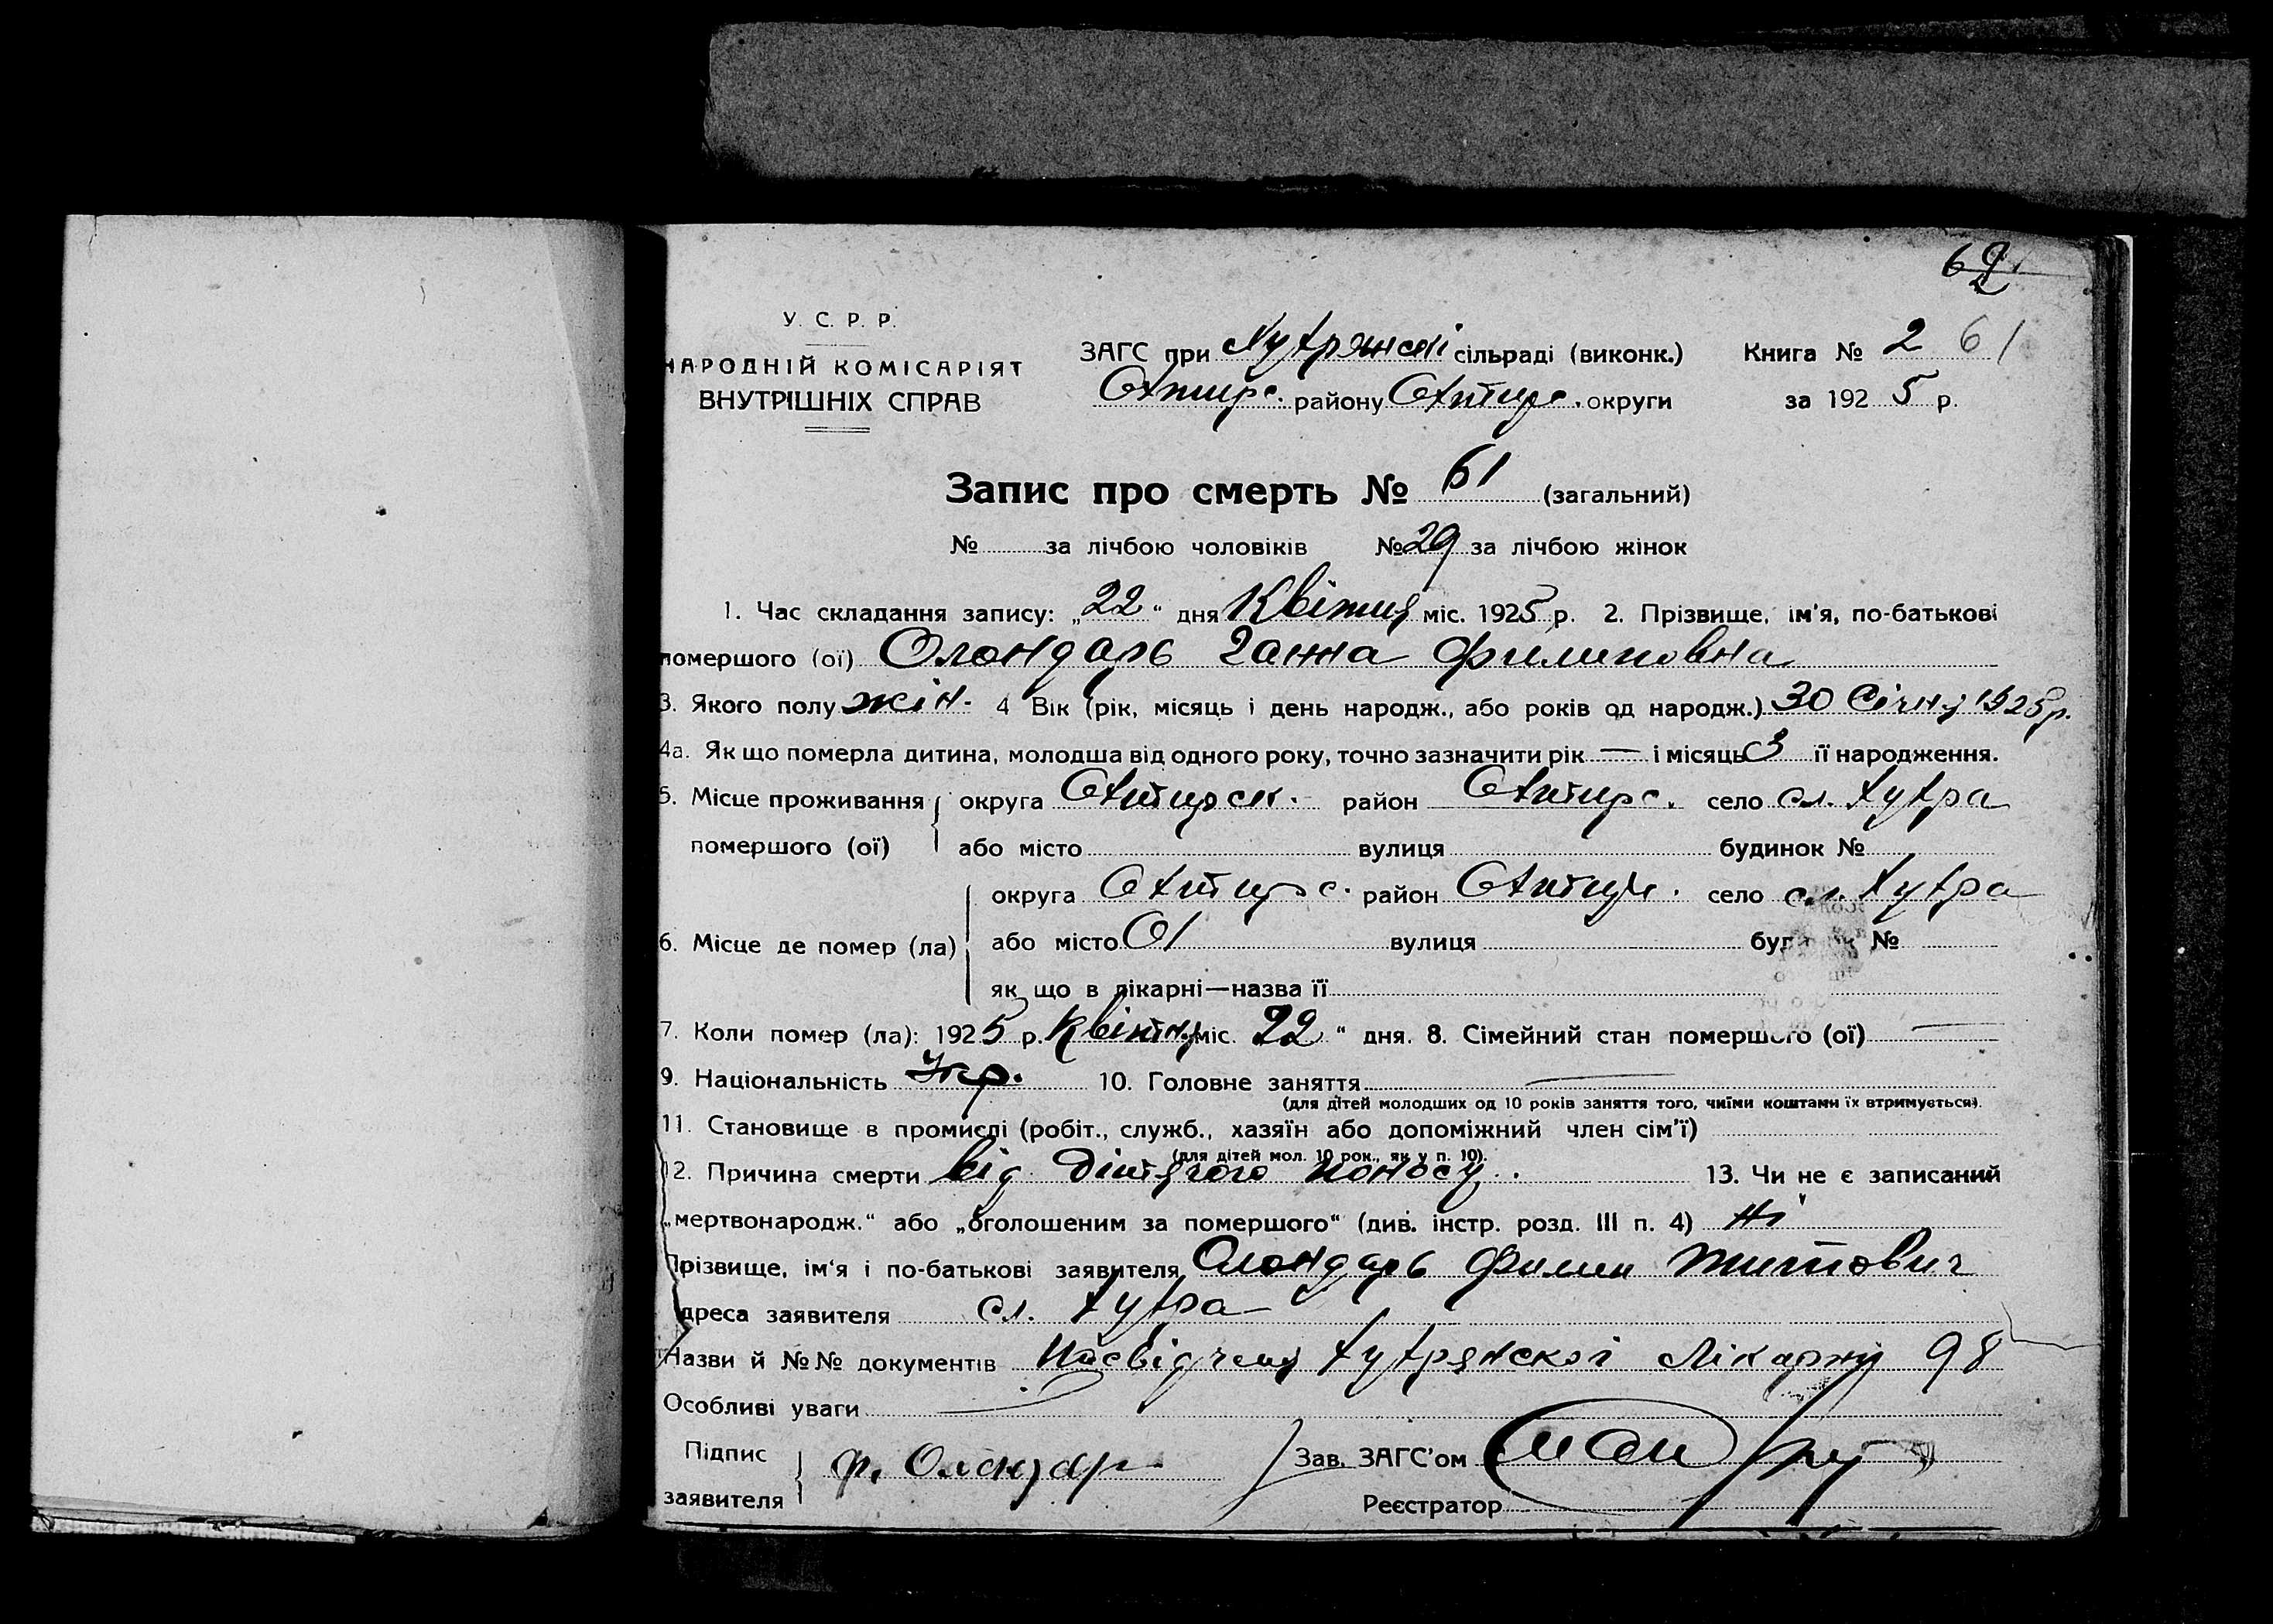 62
У. С. Р. Р.
НАРОДНІЙ КОМІСАРІЯТ
ВНУТРІШНІХ СПРАВ
ЗАГС при Хухрянскі сільраді (виконк.) Книга № 2 61
Охтирс. району Охтирс. округи за 1925 р.
Запис про смерть № 61 (загальний)
№ за лічбою чоловіків № 29 за лічбою жінок
1. Час складання запису: „22“ дня Квітня міс. 1925 р. 2. Прізвище, ім'я, по-батькові
помершого (ої) Олондарь Ганна Филиповна
3. Якого полу жін. 4 Вік (рік, місяць і день народж., або років од народж.) 30 Січня 1925 р.
4а. Як що померла дитина, молодша від одного року, точно зазначити рік — і місяць 3 її народження.
5. Місце проживання округа Охтирск. район Охтирс. село сл. Хухра
помершого (ої) або місто вулиця будинок №
округа Охтирс. район Охтир. село сл. Хухра
6. Місце де помер (ла) або місто вулиця №
як що в лікарні—назва її
7. Коли помер (ла): 1925 р. Квітня міс. 22 “ дня. 8. Сімейний стан помершого (ої) —
9. Національність Укр. 10. Головне заняття —
(для дітей молодших од 10 років заняття того, чиїми коштами їх втримується).
11. Становище в промислі (робіт., служб., хазяїн або допоміжний член сім'ї)
(для дітей мол. 10 рок., як у п. 10).
12. Причина смерти від дітячого поносу. 13. Чи не є записаний
„мертвонародж.“ або „оголошеним за помершого“ (див. інстр. розд. III п. 4) Ні
Прізвище, ім'я і по-батькові заявителя Олондарь Филип Титович
Адреса заявителя сл. Хухра
Назви й №№ документів Посвідченя Хухрянскоі Лікарні 98
Особливі уваги —
Підпис Ф. Олондар Зав. ЗАГС'ом
заявителя Реєстратор